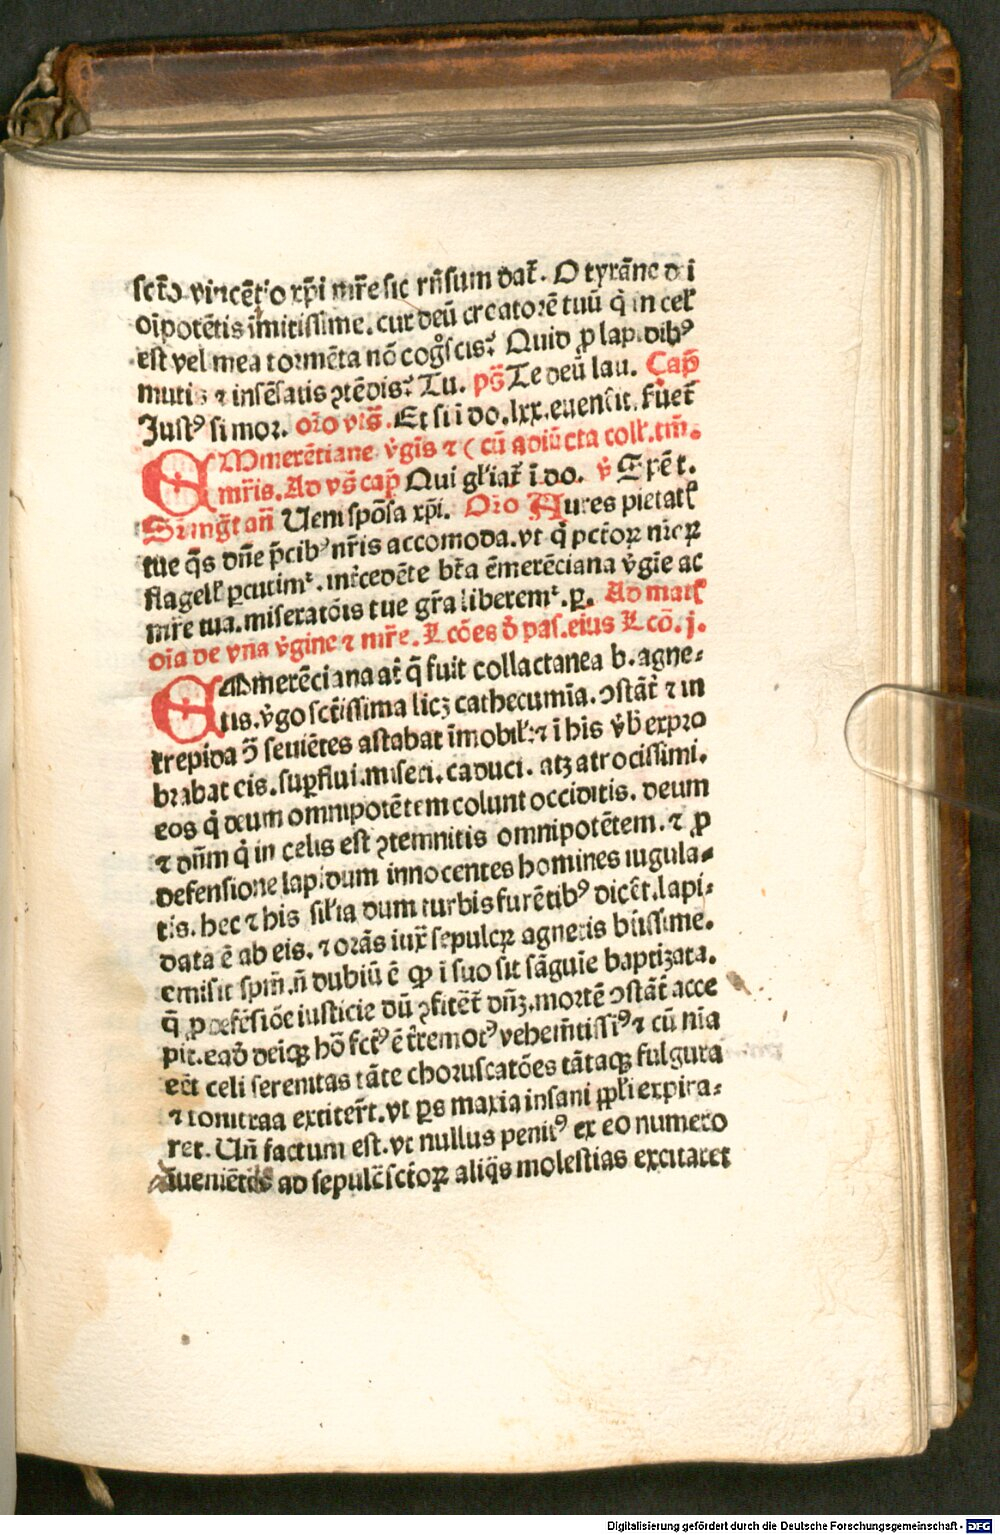 sct̄o vincēt̛o xp̄i mr̄e sic rn̄sum dat̄. O tyrāne d i
oīpotētis īmitissime. cur deū creatorē tuū q̄ in cel̛
est vel mea tormēta nō cog̊scis? Quid ꝓ lapidibꝰ
mutis ⁊ insēsatis ꝯtēdis? Tu. ps̄ Te deū lau. Cap̄
Justꝰ si mor. or̄o viḡ. Et si ī do. lxx. euenēit. fuet̄
EMmerētiane v̄gīs ⁊ ( cū adiūcta coll̛. tm̄.
mr̄is. Ad vs̄ cap̄ Qui gl̛iat̄ ī do. v̄
añ Uem spōsa xp̄i. Or̄o Aures pietatꝭ
tue q̄s dn̄e p̄cibꝰ nr̄is accomoda. vt q̄ pctōꝝ nr̄oꝝ
flagell̛ ꝑcutimꝰ. int̄cedēte bt̄a ēmerēciana v̄gīe ac
mr̄e tua. miseratōis tue gr̄a liberemꝰ. ꝑ. Ad matꝭ
oīa de vna v̄gine ⁊ mr̄e. Lcōes d̄ pas. eius Lcō. j.
EMmerēciana at̄ q̄ fuit collactanea b. agne⸗
tis. v̄go sct̄issima licꝫ cathecumīa. ꝯstāt̄ ⁊ in
trepida ꝯ̄ seuiētes astabat īmobil̛: ⁊ ī his v̄b̄ expro
brabat eis. suꝑflui. miseri. caduci. atꝫ atrocissimi.
eos q̄ deum omnipotētem colunt occiditis. deum
⁊ dn̄m q̄ in celis est ꝯtemnitis omnipotētem. ⁊ ꝓ
defensione lapidum innocentes homines iugula⸗
tis. hec ⁊ his sil̛ia dum turbis furētibꝰ dicēt̄. lapi⸗
data ē ab eis. ⁊ orās iux̄ sepulcꝝ agnetis btīssime.
emisit spm̄. n̄ dubiū ē ꝙ ī suo sit sāguīe baptizata.
q̄ ꝓ defēsiōe iusticie dū ꝯfitēt̄ dn̄ꝫ. mortē ꝯstāt̄ acce
pit. eadē deīqꝫ hō fctꝰ ē t̄remotꝰ vehemn̄tissīꝰ ⁊ cū nīa
eēt celi serenitas tāte choruscatōes tātaqꝫ fulgura
⁊ tonitrua extiter̄t. vt ꝑs maxīa insani ppl̛i expira⸗
ret. Un̄ factum est. vt nullus penitꝰ ex eo numero
ad sepulc̄ sctōꝝ aliq̄s molestias excitaret
Digitalisierung gefördert durch die Deutsche Forschungsgemeinschaft - DFG